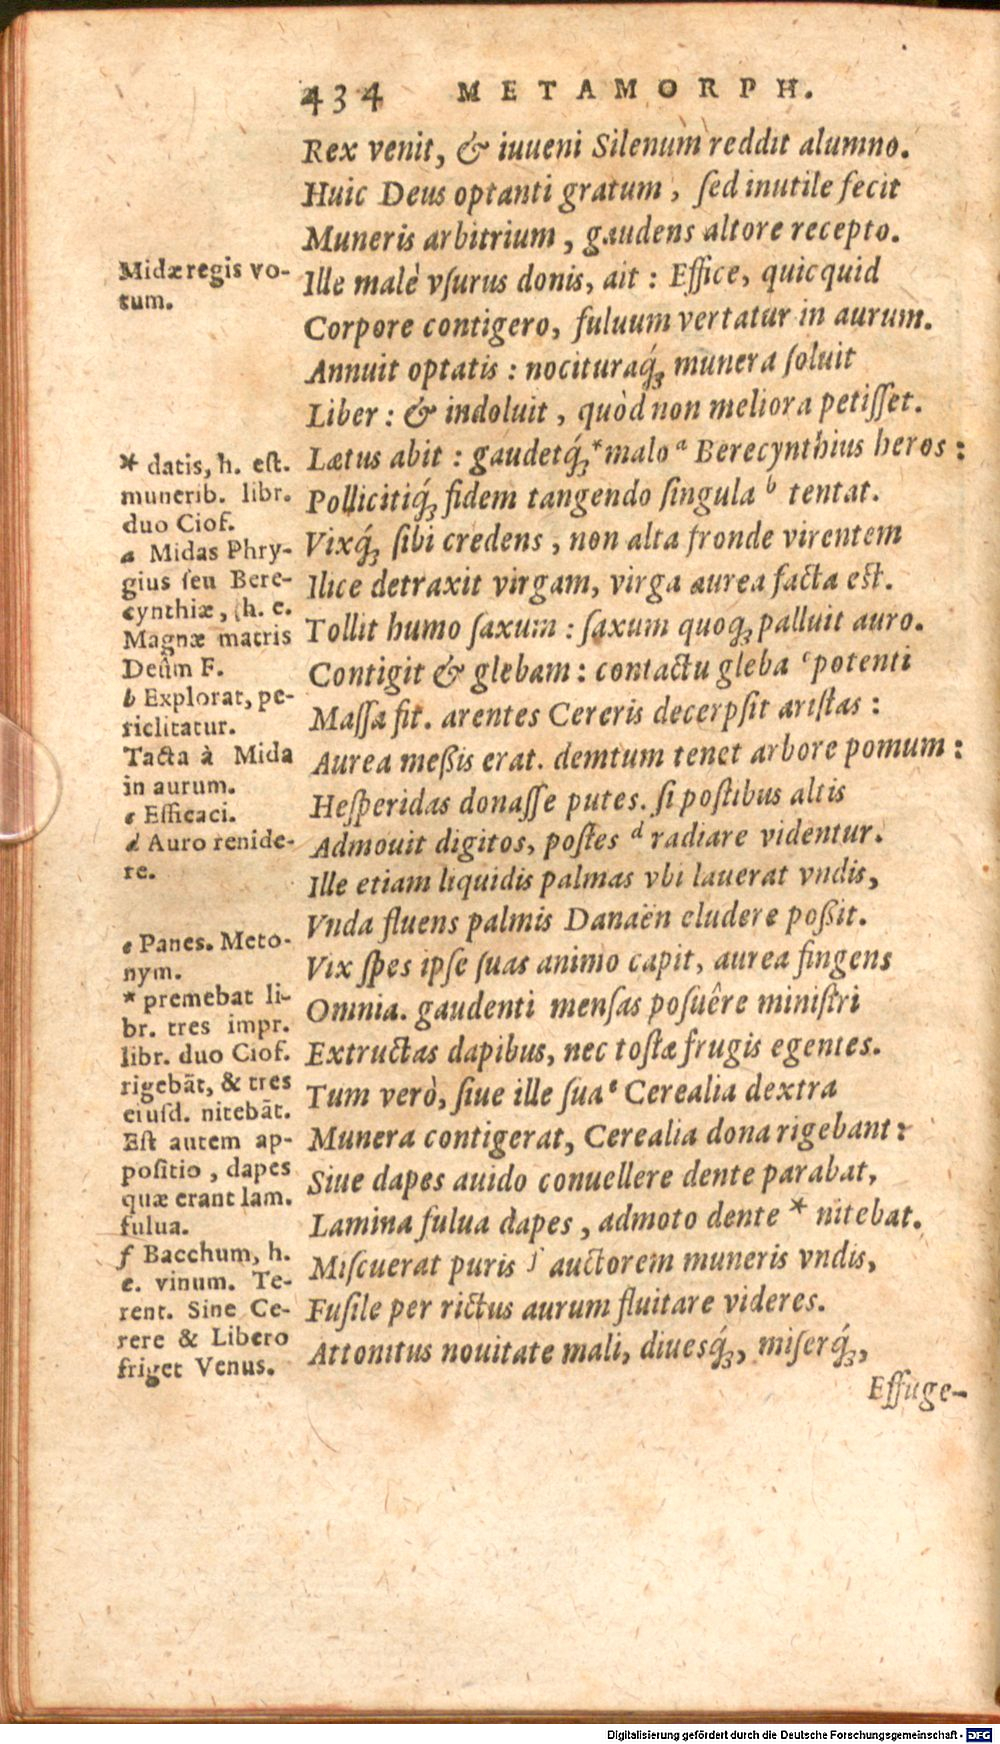 434 METAMORPH.
Rex venit, & iuueni Silenum reddit alumno.
Huic Deus optanti gratum, ſed inutile fecit
Muneris arbitrium, gaudens altore recepto.
Ille malè vſurus donis, ait: Effice, quicquid
Corpore contigero, fuluum vertatur in aurum.
Annuit optatis: nocituraq́ꝫ munera ſoluit
Liber: & indoluit, quòd non meliora petiſſet.
Lætus abit: gaudetq́ꝫ * malo ᵃ Berecynthius heros:
Pollicitiq́ꝫ fidem tangendo ſingula ᵇ tentat.
Vixq́ꝫ ſibi credens, non alta fronde virentem
Ilice detraxit virgam, virga aurea facta eſt.
Tollit humo ſaxum: ſaxum quoqꝫ palluit auro.
Contigit & glebam: contactu gleba ᶜ potenti
Maſſa fit. arentes Cereris decerpſit ariſtas:
Aurea meßis erat. demtum tenet arbore pomum:
Heſperidas donaſſe putes. ſi poſtibus altis
Admouit digitos, poſtes ᵈ radiare videntur.
Ille etiam liquidis palmas vbi lauerat vndis,
Vnda fluens palmis Danaën eludere poßit.
Vix ſpes ipſe ſuas animo capit, aurea fingens
Omnia. gaudenti menſas poſuêre miniſtri
Extructas dapibus, nec toſtæ frugis egentes.
Tum verò, ſiue ille ſua ᵉ Cerealia dextra
Munera contigerat, Cerealia dona rigebant:
Siue dapes auido conuellere dente parabat,
Lamina fulua dapes, admoto dente * nitebat.
Miſcuerat puris ᶠ auctorem muneris vndis,
Fuſile per rictus aurum fluitare videres.
Attonitus nouitate mali, diuesq́ꝫ, miſerq́ꝫ,
Effuge-
Midæ regis vo-
tum.
* datis, h. eſt.
munerib. libr.
duo Ciof.
a Midas Phry-
gius ſeu Bere-
cynthiæ, (h. e.
Magnæ matris
Deûm F.
b Explorat, pe-
riclitatur.
Tacta à Mida
in aurum.
c Efficaci.
d Auro renide-
re.
e Panes. Meto-
nym.
* premebat li-
br. tres impr.
libr. duo Ciof.
rigebāt, & tres
eiuſd. nitebāt.
Eſt autem ap-
poſitio, dapes
quæ erant lam.
fulua.
f Bacchum, h.
e. vinum. Te-
rent. Sine Ce-
rere & Libero
friget Venus.
Digitalisierung gefördert durch die Deutsche Forschungsgemeinschaft - DFG